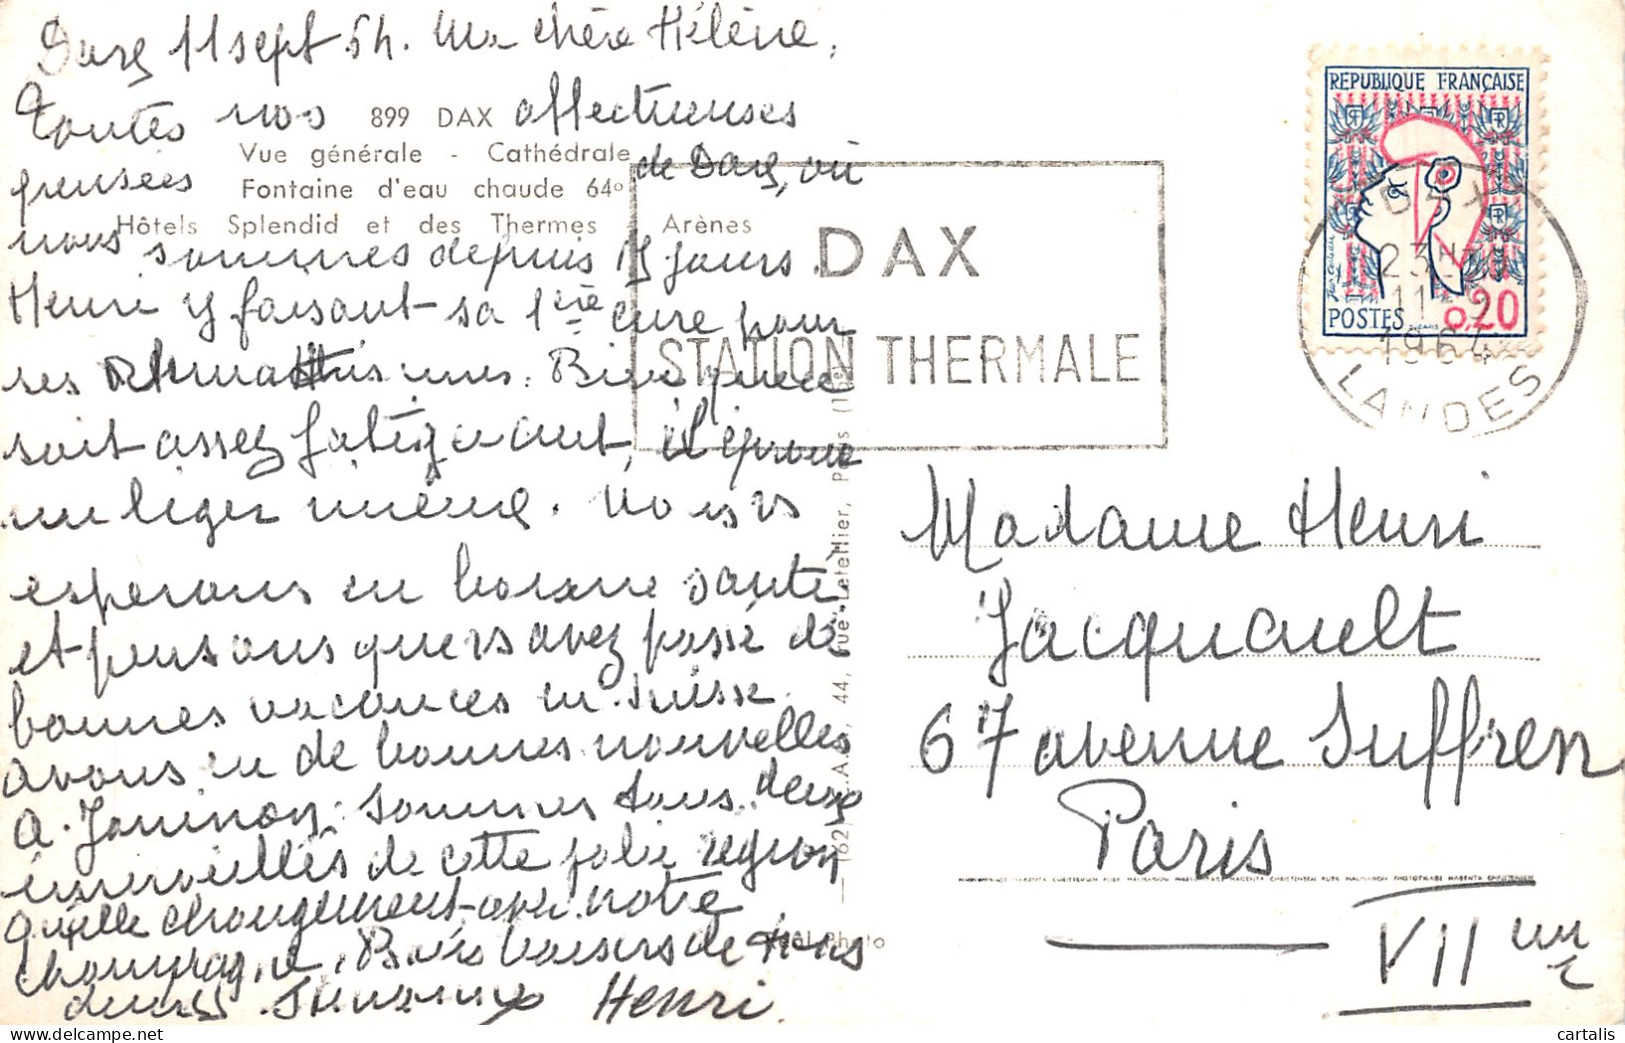 Dax 11 sept 64. Ma chère Hélène,
Toutes nos affectueuses
899 DAX
Vue générale - Cathédrale
Fontaine d'eau chaude 64º
Hôtels Splendid et des Thermes - Arènes
pensées de Dax, où
nous sommes depuis 15 jours.
Henri y faisant sa 1ère cure pour
ses rhumatismes. Bien que ce
soit assez fatiguant, il éprouve
un léger mieux. Nous vs
esperons en bonne santé
et pensons que vs avez passé de
bonnes vacances en Suisse.
avons eu de bonnes nouvelles
sommes tous deux
émerveillés de cette jolie région
quelle changement avec notre
champagne. Bons baisers de nous
deux. Suzanne Henri.
DAX
STATION THERMALE
REPUBLIQUE FRANÇAISE
POSTES 0,20
DAX
23H
11-9
1964
LANDES
44, Rue Letellier, Paris
Réal-Photo
Madame Henri
Jacquault
67 avenue Suffren
Paris
VII me
cartalis